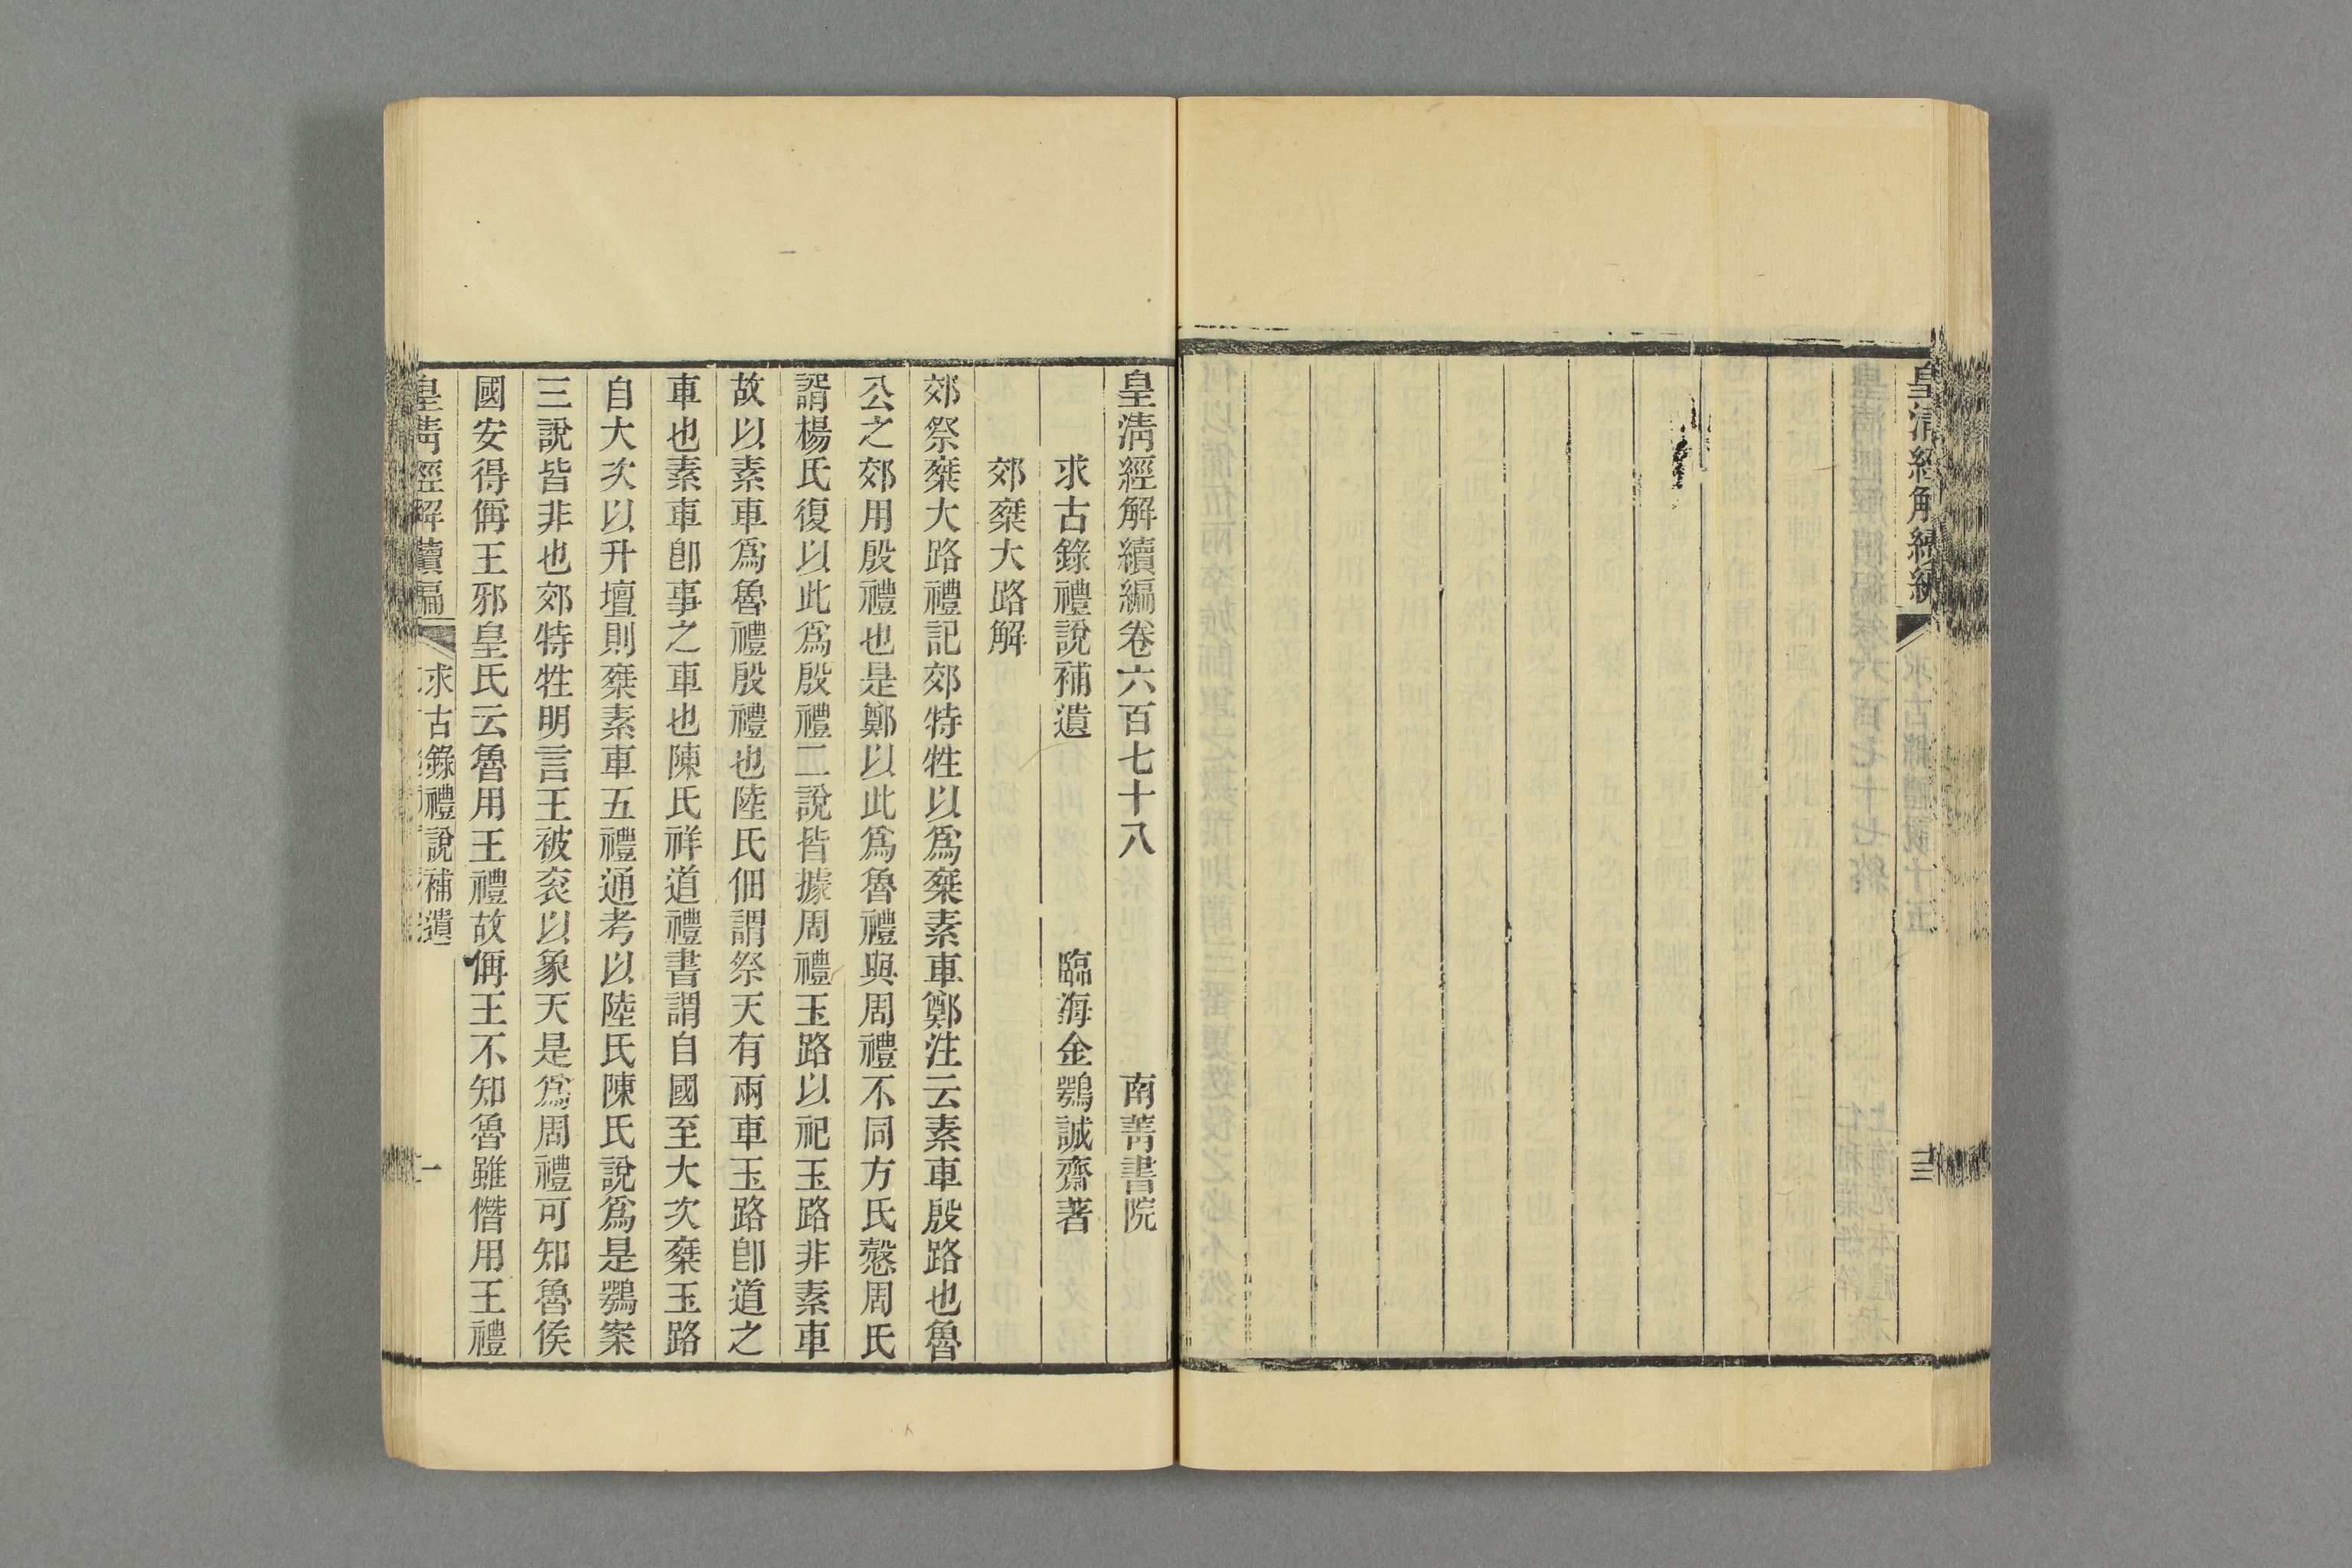 皇清經解續編
十三
皇清經解續編卷六百七十八 南菁書院
求古錄禮說補遺 臨海金鶚誠齋著
郊椉大路解
郊祭椉大路禮記郊特牲以爲椉素車鄭注云素車殷路也魯
公之郊用殷禮也是鄭以此爲魯禮與周禮不同方氏慤周氏
諝楊氏復以此爲殷禮二說皆據周禮玉路以祀玉路非素車
故以素車爲魯禮殷禮也陸氏佃謂祭天有兩車玉路卽道之
車也素車卽事之車也陳氏祥道禮書謂自國至大次椉玉路
自大次以升壇則椉素車五禮通考以陸氏陳氏說爲是鶚案
三說皆非也郊特牲明言王被袞以象天是爲周禮可知魯侯
國安得偁王邪皇氏云魯用王禮故偁王不知魯雖僭用王禮
皇清經解續編 求古錄禮說補遺 一